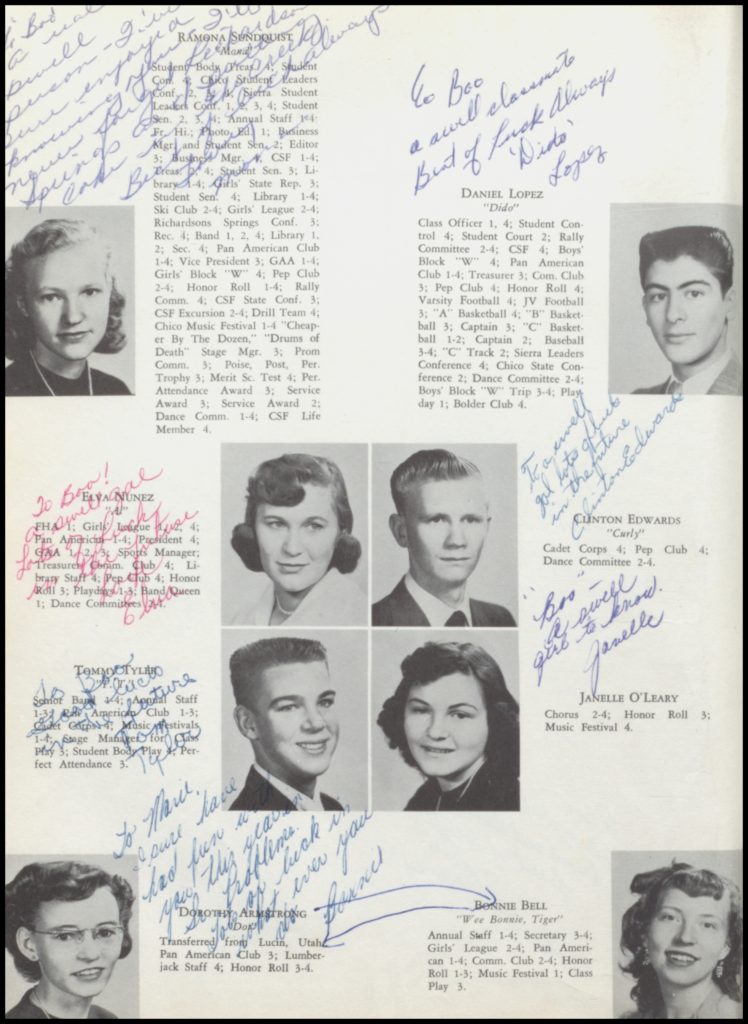 To Boo
a real
swell
person - I've
sure enjoyed
knowing you. I'll
never forget Richardson
Springs
always
RAMONA SUNDQUIST
"Mona"
Student Body Treas. 4; Student
Con. 4; Chico Student Leaders
Conf. 2, 3, 4; Sierra Student
Leaders Conf. 1, 2, 3, 4; Student
Sen. 2, 3, 4; Annual Staff 1-4;
Fr. Hi.; Photo Ed. 1; Business
Mgr. and Student Sen. 2; Editor
3; Business Mgr. 4, CSF 1-4;
Treas. 2, 4; Student Sen. 3; Li-
brary 1-4; Girls' State Rep. 3;
Student Sen. 4; Library 1-4;
Ski Club 2-4; Girls' League 2-4;
Richardsons Springs Conf. 3;
Rec. 4; Band 1, 2, 4; Library 1,
2; Sec. 4; Pan American Club
1-4; Vice President 3; GAA 1-4;
Girls' Block "W" 4; Pep Club
2-4; Honor Roll 1-4; Rally
Comm. 4; CSF State Conf. 3;
CSF Excursion 2-4; Drill Team 4;
Chico Music Festival 1-4 "Cheap-
er By The Dozen," "Drums of
Death" Stage Mgr. 3; Prom
Comm. 3; Poise, Post, Per.
Trophy 3; Merit Sc. Test 4; Per.
Attendance Award 3; Service
Award 3; Service Award 2;
Dance Comm. 1-4; CSF Life
Member 4.
To Boo
a swell classmate
Best of Luck Always
'Dido'
Lopez
DANIEL LOPEZ
"Dido"
Class Officer 1, 4; Student Con-
trol 4; Student Court 2; Rally
Committee 2-4; CSF 4; Boys'
Block "W" 4; Pan American
Club 1-4; Treasurer 3; Com. Club
3; Pep Club 4; Honor Roll 4;
Varsity Football 4; JV Football
3; "A" Basketball 4; "B" Basket-
ball 3; Captain 3; "C" Basket-
ball 1-2; Captain 2; Baseball
3-4; "C" Track 2; Sierra Leaders
Conference 4; Chico State Con-
ference 2; Dance Committee 2-4;
Boys' Block "W" Trip 3-4; Play
day 1; Bolder Club 4.
To Boo!
a swell gal
Lots of luck
in the future
Elva
ELVA NUNEZ
"Al"
FHA 1; Girls' League 1, 2, 4;
Pan American 1-4; President 4;
GAA 1, 3; Sports Manager;
Treasurer; Comm. Club 4; Li-
brary Staff 4; Pep Club 4; Honor
Roll 3; Playdays 1-3; Band Queen
1; Dance Committees 1-4.
To a swell
gal lots of luck
in the future
Clinton Edwards
CLINTON EDWARDS
"Curly"
Cadet Corps 4; Pep Club 4;
Dance Committee 2-4.
"Boo" -
a swell
girl to know.
Janelle
JANELLE O'LEARY
Chorus 2-4; Honor Roll 3;
Music Festival 4.
To Boo
Good luck
in the future
Tom
Tyler
TOMMY TYLER
"T.T."
Senior Band 1-4; Annual Staff
1-3; Pan American Club 1-3;
Cadet Corps 4; Music Festivals
1-4; Stage Manager for Class
Play 3; Student Body Play 4; Per-
fect Attendance 3.
To Marie,
I sure have
had fun with
you this year in
Sr. Problems.
Lots of luck in
what ever you
do
Bonnie
DOROTHY ARMSTRONG
"Dot"
Transferred from Lucin, Utah;
Pan American Club 3; Lumber-
jack Staff 4; Honor Roll 3-4.
BONNIE BELL
"Wee Bonnie, Tiger"
Annual Staff 1-4; Secretary 3-4;
Girls' League 2-4; Pan Ameri-
can 1-4; Comm. Club 2-4; Honor
Roll 1-3; Music Festival 1; Class
Play 3.